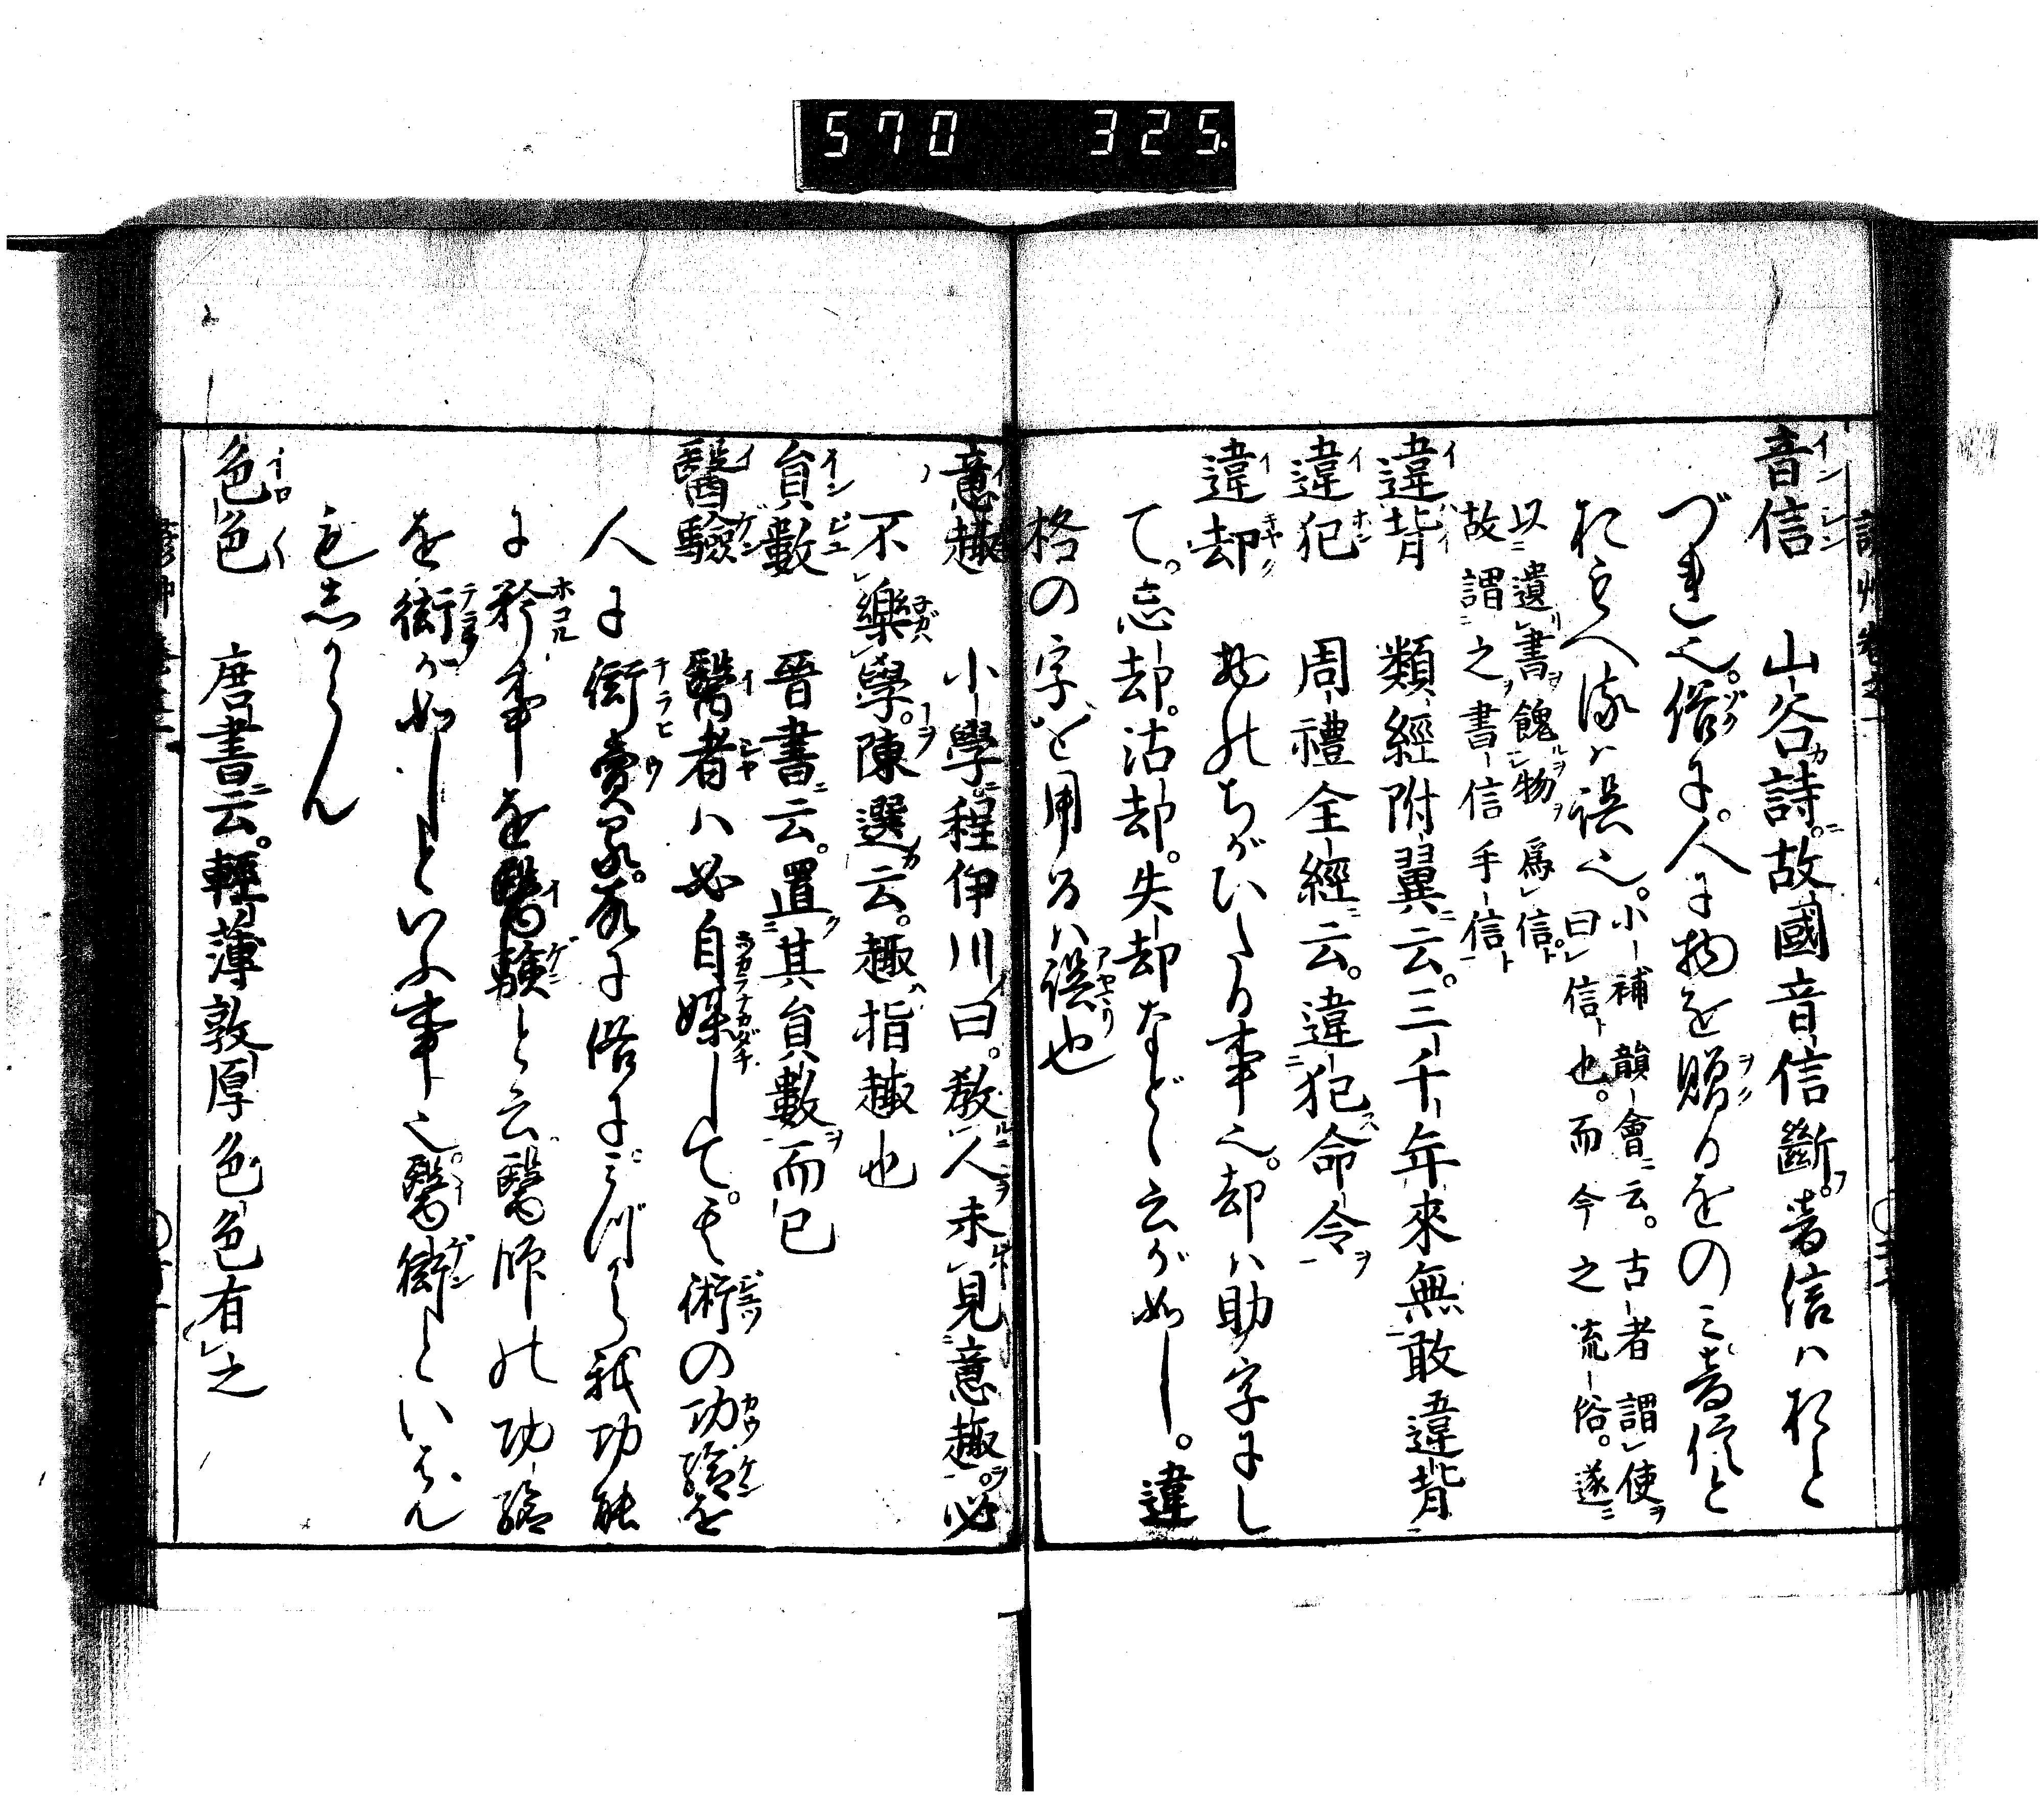 570 325
音信 山谷詩故國音信斷音信ハおと
づれ也俗に人に物を贈るをのミ音信と
おもへ流ハ誤也小補韻會云古者謂使
曰信也而今之流俗遂
以遺書餽物爲信
故謂之書信手信
違背 類經附翼云三千年來無敢違背
違犯 周禮全經云違犯命令
違却 物のちがひたる事也却ハ助字にし
て忘却沽却失却などゝ云が如し違
格の字を用るハ誤也
意趣 小學程伊川曰教人未見意趣必
不樂學陳選云趣指趣也
員數 晉書云置其員數而已
醫驗 醫者ハ必自媒して其術の功驗を
人に衒賣る故に俗にみづから我功能
に矜事を醫驗と云醫師の功驗
を衒が如しといふ事也醫衒といはん
色色 唐書云輕薄敦厚色色有之